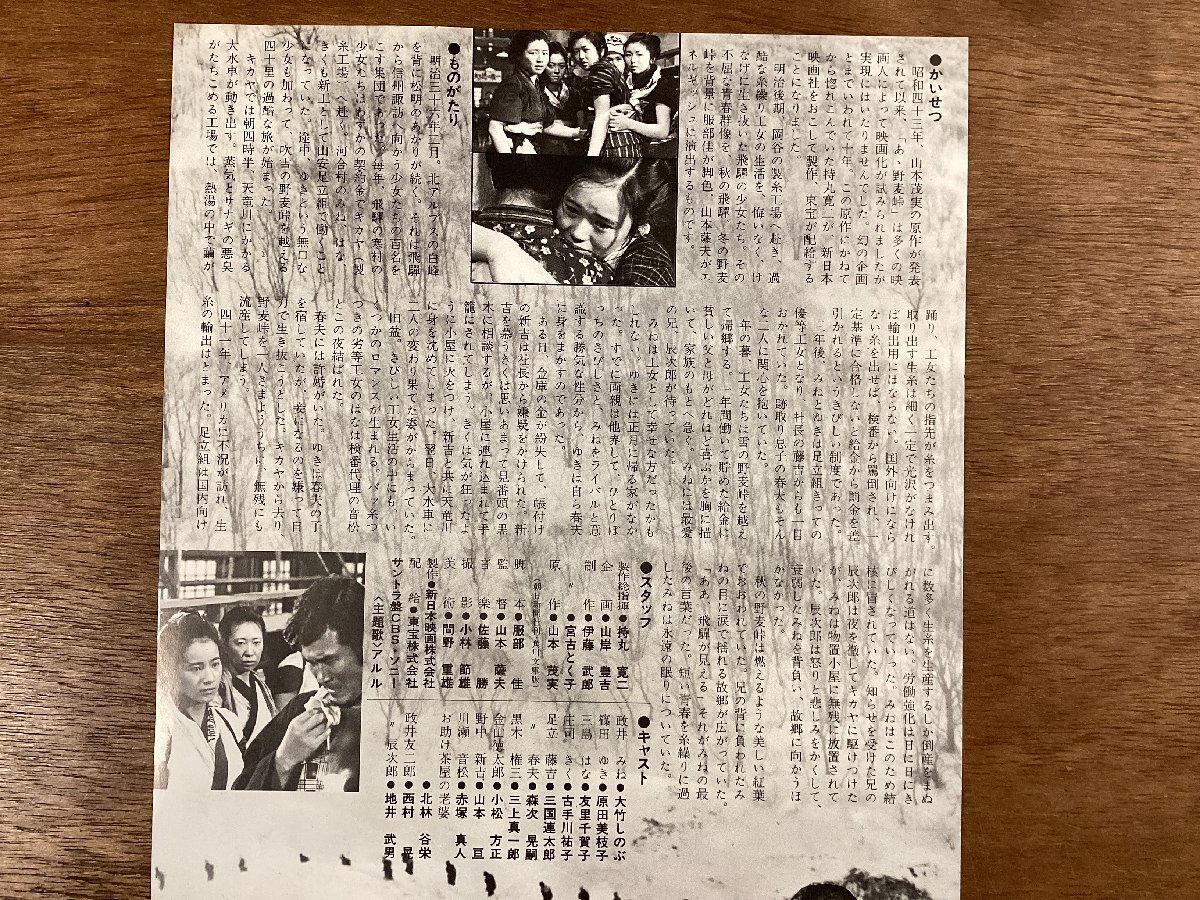 ●かいせつ
昭和四十三年、山本茂実の原作が発表
されて以来、「あゝ野麦峠」は多くの映
画人によって映画化が試みられましたが
実現にはいたりませんでした。幻の企画
とまでいわれて十年。この原作にかねて
から惚れこんでいた持丸寛二が、新日本
映画社をおこして製作、東宝が配給する
ことになりました。
明治後期、岡谷の製糸工場へ赴き、過
酷な糸繰り工女の生活を、悔いなく、け
なげに生き抜いた飛騨の少女たち。その
不屈な青春群像を、秋の飛騨、冬の野麦
峠を背景に服部佳が脚色、山本薩夫がエ
ネルギッシュに演出するものです。
●ものがたり
明治三十六年二月。北アルプスの白峰
を背に松明のあかりが続く。それは飛騨
から信州諏訪へ向かう少女たちの百名を
こす集団であった。毎年、飛騨の寒村の
少女たちはわずかの契約金でキカヤ（製
糸工場）へ赴く。河合村のみね、はな、
きくも新工として山安足立組で働くこと
になっていた。途中、ゆきという無口な
少女も加わって、吹雪の野麦峠を越える
四十里の過酷な旅が始まった。
キカヤでは朝四時半、天竜川にかかる
大水車が動き出す。蒸気とサナギの悪臭
がたちこめる工場では、熱湯の中で繭が
踊り、工女たちの指先が糸をつまみ出す。
取り出す生糸は細く一定で光沢がなけれ
ば輸出用にはならない。国外向けになら
ない糸を出せば、検番から罵倒され、一
定基準に合格しないと給金から罰金を差
引かれるというきびしい制度であった。
三年後、みねとゆきは足立組きっての
優等工女となり、社長の藤吉からも一目
おかれていた。跡取り息子の春夫もそん
な二人に関心を抱いていた。
年の暮、工女たちは雪の野麦峠を越え
て帰郷する。一年間働いて貯めた給金に
貧しい父と母がどれほど喜ぶかを胸に描
いて、家族のもとへ急ぐ。みねには最愛
の兄、辰次郎が待っていた。
みねは工女として幸せな方だったかも
しれない。ゆきには正月に帰る家がなか
った。すでに両親は他界して、ひとりぼ
っちのさびしさと、みねをライバルと意
識する勝気な性分から、ゆきは自ら春夫
に身をまかすのであった。
ある日、金庫の金が紛失して、帳付け
の新吉は社長から嫌疑をかけられた。新
吉を慕うきくは思いあまって見番頭の黒
木に相談するが、小屋に連れ込まれて手
籠にされてしまう。きくは気が狂ったよ
うに小屋に火をつけ、新吉と共に天竜川
に身を沈めてしまった。翌日、大水車に
二人の変わり果てた姿がからまっていた。
旧盆。きびしい工女生活の中にも、い
くつかのロマンスが生まれる。バツ糸つ
づきの劣等工女のはなは検番代理の音松
とこの夜結ばれた。
春夫には許婚がいた。ゆきは春夫の子
を宿していたが、妾になるのを嫌って自
力で生き抜こうとした。キカヤから去り、
野麦峠を一人さまよううちに、無残にも
流産してしまう。
四十一年、アメリカに不況が訪れ、生
糸の輸出はとまった。足立組は国内向け
に数多く生糸を生産するしか倒産をまぬ
がれる道はない。労働強化は日に日にき
びしくなっていった。みねはこのため結
核に冒されていた。知らせを受けた兄の
辰次郎は夜を徹してキカヤに駆けつけた
が、みねは物置小屋に無残に放置されて
いた。辰次郎は怒りと悲しみをかくして、
衰弱したみねを背負い、故郷に向かうほ
かなかった。
秋の野麦峠は燃えるような美しい紅葉
でおおわれていた。兄の背に負われたみ
ねの目に涙で揺れる故郷が広がっていた。
「ああ、飛騨が見える」それがみねの最
後の言葉だった。短い青春を糸繰りに過
したみねは永遠の眠りについていた。
●スタッフ
製作総指揮●持丸 寛二
企 画●山岸 豊吉
制 作●伊藤 武郎
〃 ●宮古とく子
原 作●山本 茂実
脚 本●服部 佳
監 督●山本 薩夫
音 楽●佐藤 勝
撮 影●小林 節雄
美 術●間野 重雄
製作●新日本映画株式会社
配 給●東宝株式会社
サントラ盤CBS・ソニー
〈主題歌〉アルル
●キャスト
政井 みね●大竹しのぶ
篠田 ゆき●原田美枝子
三島 はな●友里千賀子
庄司 きく●古手川祐子
足立 藤吉●三国連太郎
〃 春夫●森次 晃嗣
黒木 権三●三上真一郎
金山徳太郎●小松 方正
野中 新吉●山本 亘
川瀬 音松●赤塚 真人
お助け茶屋の老婆
●北林 谷栄
政井友二郎●西村 晃
〃 辰次郎●地井 武男